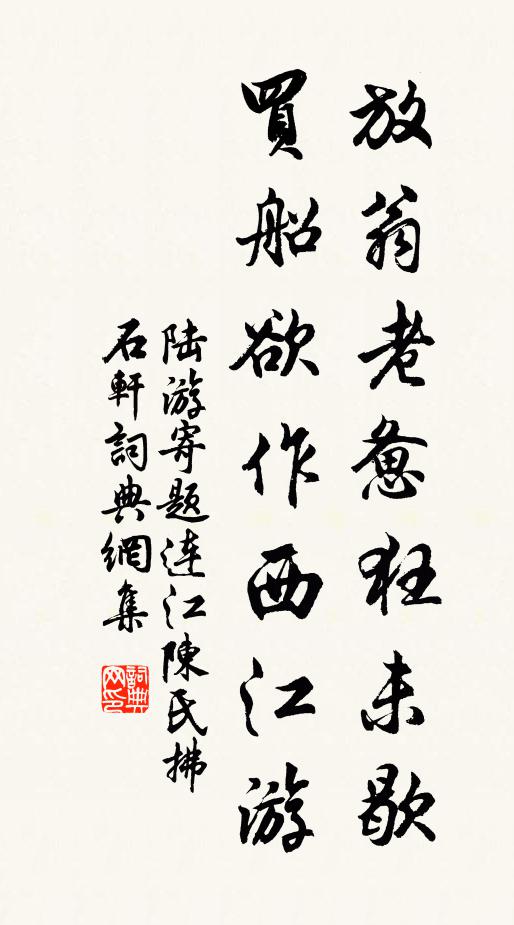 放翁老惫狂未歇
買船欲作西江游
陆游寄题连江陳氏拂
石軒詞典網集
詞典
网印